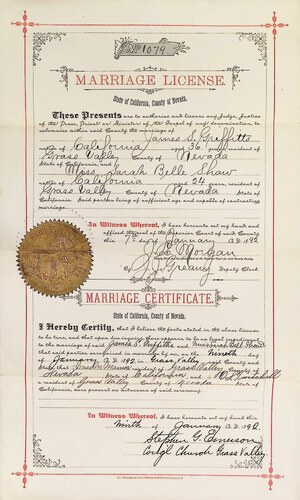 No 1079
MARRIAGE LICENSE.
State of California, County of Nevada.
These Presents are to authorize and license any Judge, Justice
of the Peace, Priest or Minister of the Gospel of any denomination, to
solemnize within said County the marriage of
James S. Griffitts
native of California aged 36 years, resident of
Grass Valley County of Nevada
State of California and
Miss Sarah Belle Shaw
native of California aged 24 years, resident of
Grass Valley County of Nevada State of
California Said parties being of sufficient age and capable of contracting
marriage.
In Witness Whereof, I have hereunto set my hand and
affixed the seal of the Superior Court of said County
this 7th day of January A.D. 1892
Morgan
By Deputy Clerk
MARRIAGE CERTIFICATE.
State of California, County of Nevada.
I Hereby Certify, that I believe the facts stated in the above license
to be true, and that upon due inquiry there appears to be no legal impediment
to the marriage of said James S. Griffitts and Miss Sarah Belle Shaw
that said parties were joined in marriage by me, on the Ninth
day of January A.D. 1892 in Grass Valley said County and
State; that a resident of Grass Valley
County of Nevada State of California and
a resident of Grass Valley County of Nevada State of
California, were present as witnesses of said ceremony.
In Witness Whereof, I have hereunto set my hand this
Ninth day of January A.D. 1892
Stephen G. Emerson
Cong'l Church Grass Valley.